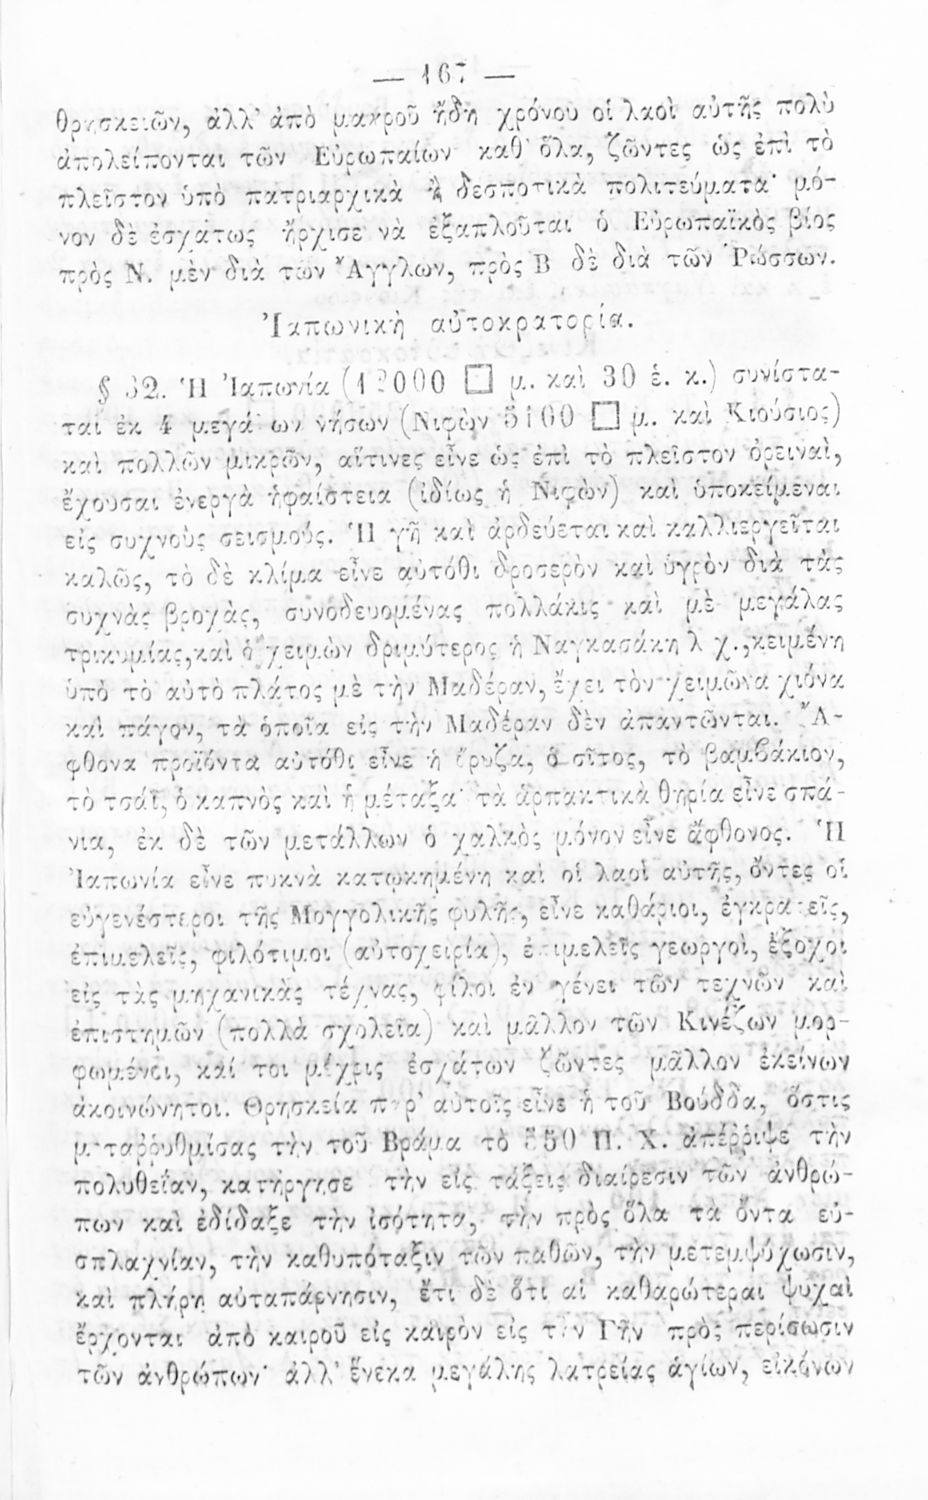 — 167 —
θρησκειῶν, ἀλλ' ἀπὸ μακροῦ ἤδη χρόνου οἱ λαοὶ αὐτῆς πολὺ
ἀπολείπονται τῶν Εὐρωπαίων καθ' ὅλα, ζῶντες ὡς ἐπὶ τὸ
πλεῖστον ὑπὸ πατριαρχικὰ ἢ δεσποτικὰ πολιτεύματα· μό-
νον δὲ ἐσχάτως ἤρχισε νὰ ἐξαπλοῦται ὁ Εὐρωπαϊκὸς βίος
πρὸς Ν. μὲν διὰ τῶν Ἄγγλων, πρὸς Β δὲ διὰ τῶν Ῥώσσων.
Ἰαπωνικὴ αὐτοκρατορία.
§ 32. Ἡ Ἰαπωνία (12000 □ μ. καὶ 30 ἑ. κ.) συνίστα-
ται ἐκ 4 μεγάλων νήσων (Νιφὼν 5100 □ μ. καὶ Κιούσιος)
καὶ πολλῶν μικρῶν, αἵτινες εἶνε ὡς ἐπὶ τὸ πλεῖστον ὀρειναὶ,
ἔχουσαι ἐνεργὰ ἡφαίστεια (ἰδίως ἡ Νιφὼν) καὶ ὑποκείμεναι
εἰς συχνοὺς σεισμούς. Ἡ γῆ καὶ ἀρδεύεται καὶ καλλιεργεῖται
καλῶς, τὸ δὲ κλίμα εἶνε αὐτόθι δροσερὸν καὶ ὑγρὸν διὰ τὰς
συχνὰς βροχὰς, συνοδευομένας πολλάκις καὶ μὲ μεγάλας
τρικυμίας, καὶ ὁ χειμὼν δριμύτερος ἡ Ναγκασάκη λ χ., κειμένη
ὑπὸ τὸ αὐτὸ πλάτος μὲ τὴν Μαδέραν, ἔχει τὸν χειμῶνα χιόνα
καὶ πάγον, τὰ ὁποῖα εἰς τὴν Μαδέραν δὲν ἀπαντῶνται. Ἄ-
φθονα προϊόντα αὐτόθι εἶνε ἡ ὄρυζα, ὁ σῖτος, τὸ βαμβάκιον,
τὸ τσάϊ, ὁ καπνὸς καὶ ἡ μέταξα· τὰ ἁρπακτικὰ θηρία εἶνε σπά-
νια, ἐκ δὲ τῶν μετάλλων ὁ χαλκὸς μόνον εἶνε ἄφθονος. Ἡ
Ἰαπωνία εἶνε πυκνὰ κατῳκημένη καὶ οἱ λαοὶ αὐτῆς, ὄντες οἱ
εὐγενέστεροι τῆς Μογγολικῆς φυλῆς, εἶνε καθάριοι, ἐγκρατεῖς,
ἐπιμελεῖς, φιλότιμοι (αὐτοχειρία), ἐπιμελεῖς γεωργοὶ, ἔξοχοι
εἰς τὰς μηχανικὰς τέχνας, φίλοι ἐν γένει τῶν τεχνῶν καὶ
ἐπιστημῶν (πολλὰ σχολεῖα) καὶ μᾶλλον τῶν Κινέζων μορ-
φωμένοι, καί τοι μέχρις ἐσχάτων ζῶντες μᾶλλον ἐκείνων
ἀκοινώνητοι. Θρησκεία παρ' αὐτοῖς εἶνε ἡ τοῦ Βούδδα, ὅστις
μεταρρυθμίσας τὴν τοῦ Βράμα τὸ 550 Π. Χ. ἀπέρριψε τὴν
πολυθεΐαν, κατήργησε τὴν εἰς τάξεις διαίρεσιν τῶν ἀνθρώ-
πων καὶ ἐδίδαξε τὴν ἰσότητα, τὴν πρὸς ὅλα τὰ ὄντα εὐ-
σπλαχνίαν, τὴν καθυπόταξιν τῶν παθῶν, τὴν μετεμψύχωσιν,
καὶ πλήρη αὐταπάρνησιν, ἔτι δὲ ὅτι αἱ καθαρώτεραι ψυχαὶ
ἔρχονται ἀπὸ καιροῦ εἰς καιρὸν εἰς τὴν Γῆν πρὸς περίσωσιν
τῶν ἀνθρώπων· ἀλλ' ἕνεκα μεγάλης λατρείας ἁγίων, εἰκόνων